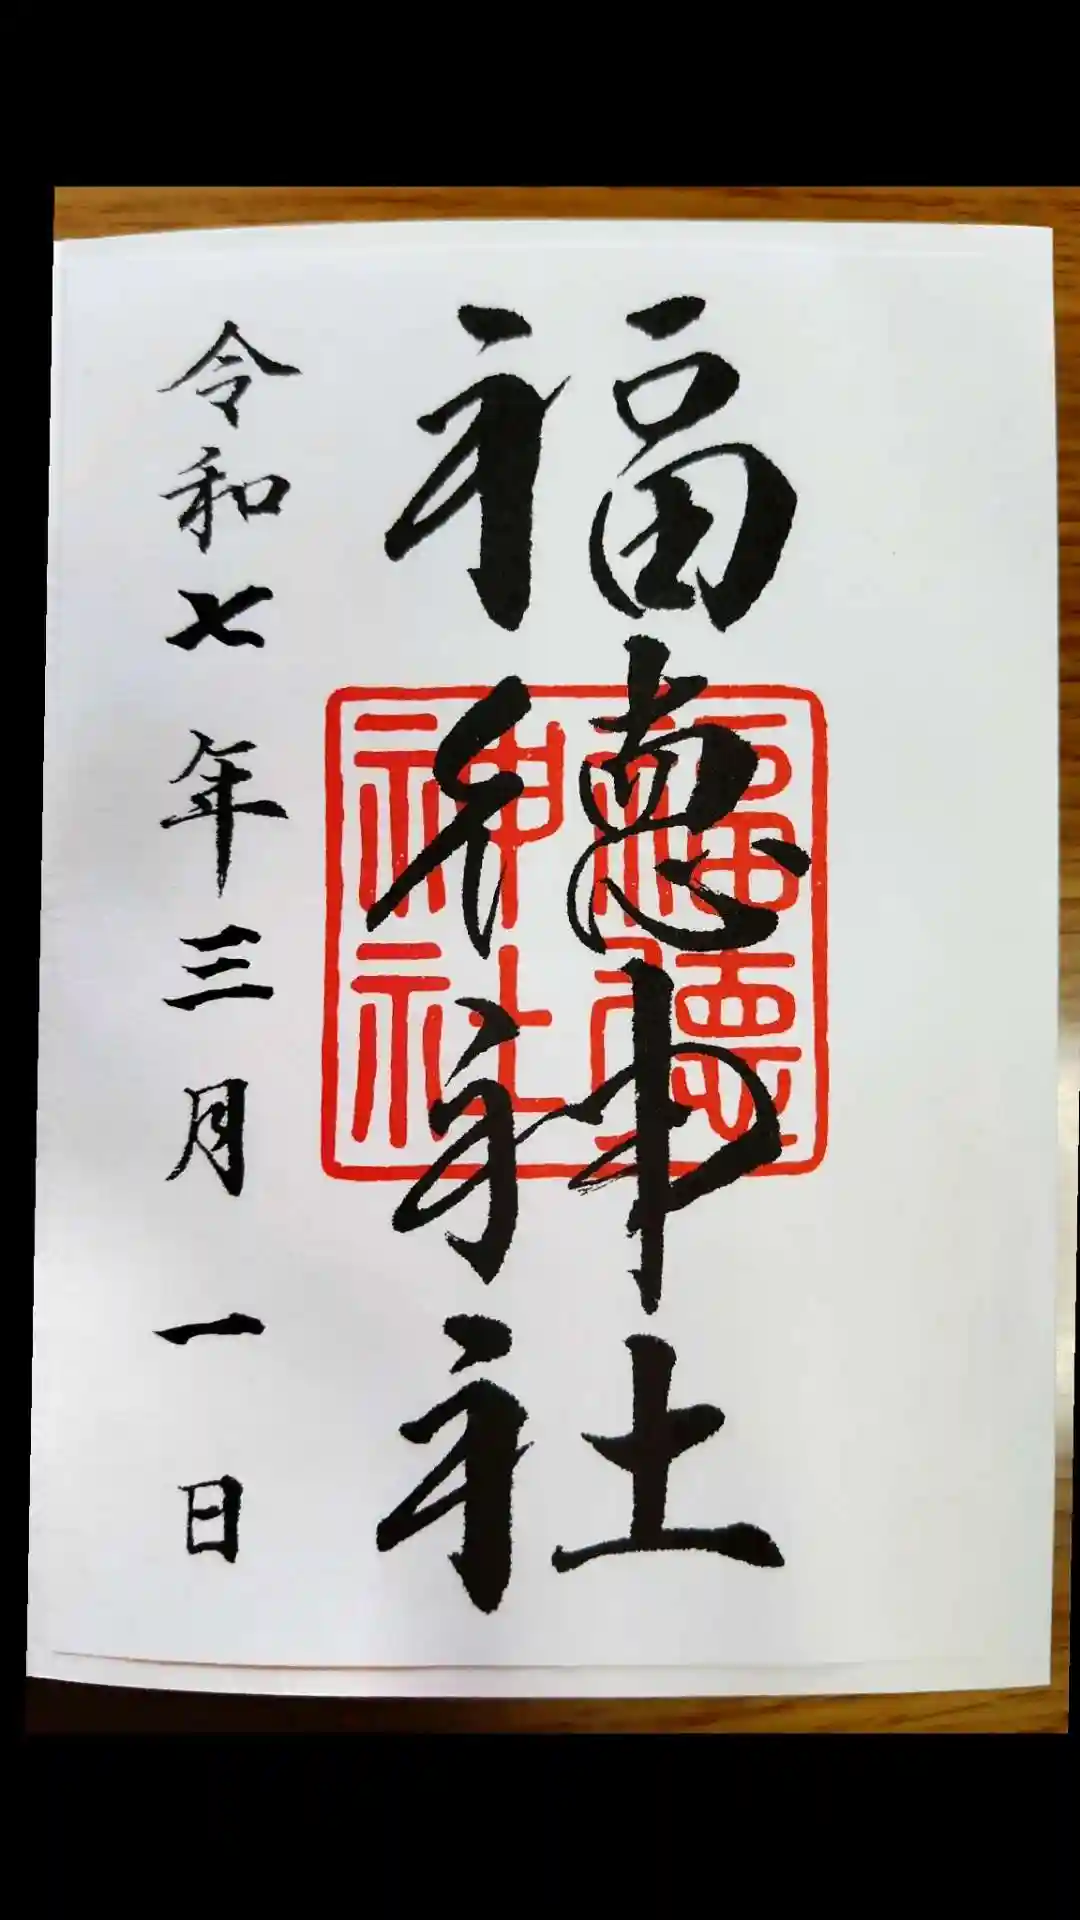 福德神社
福德神社
令和七年三月一日